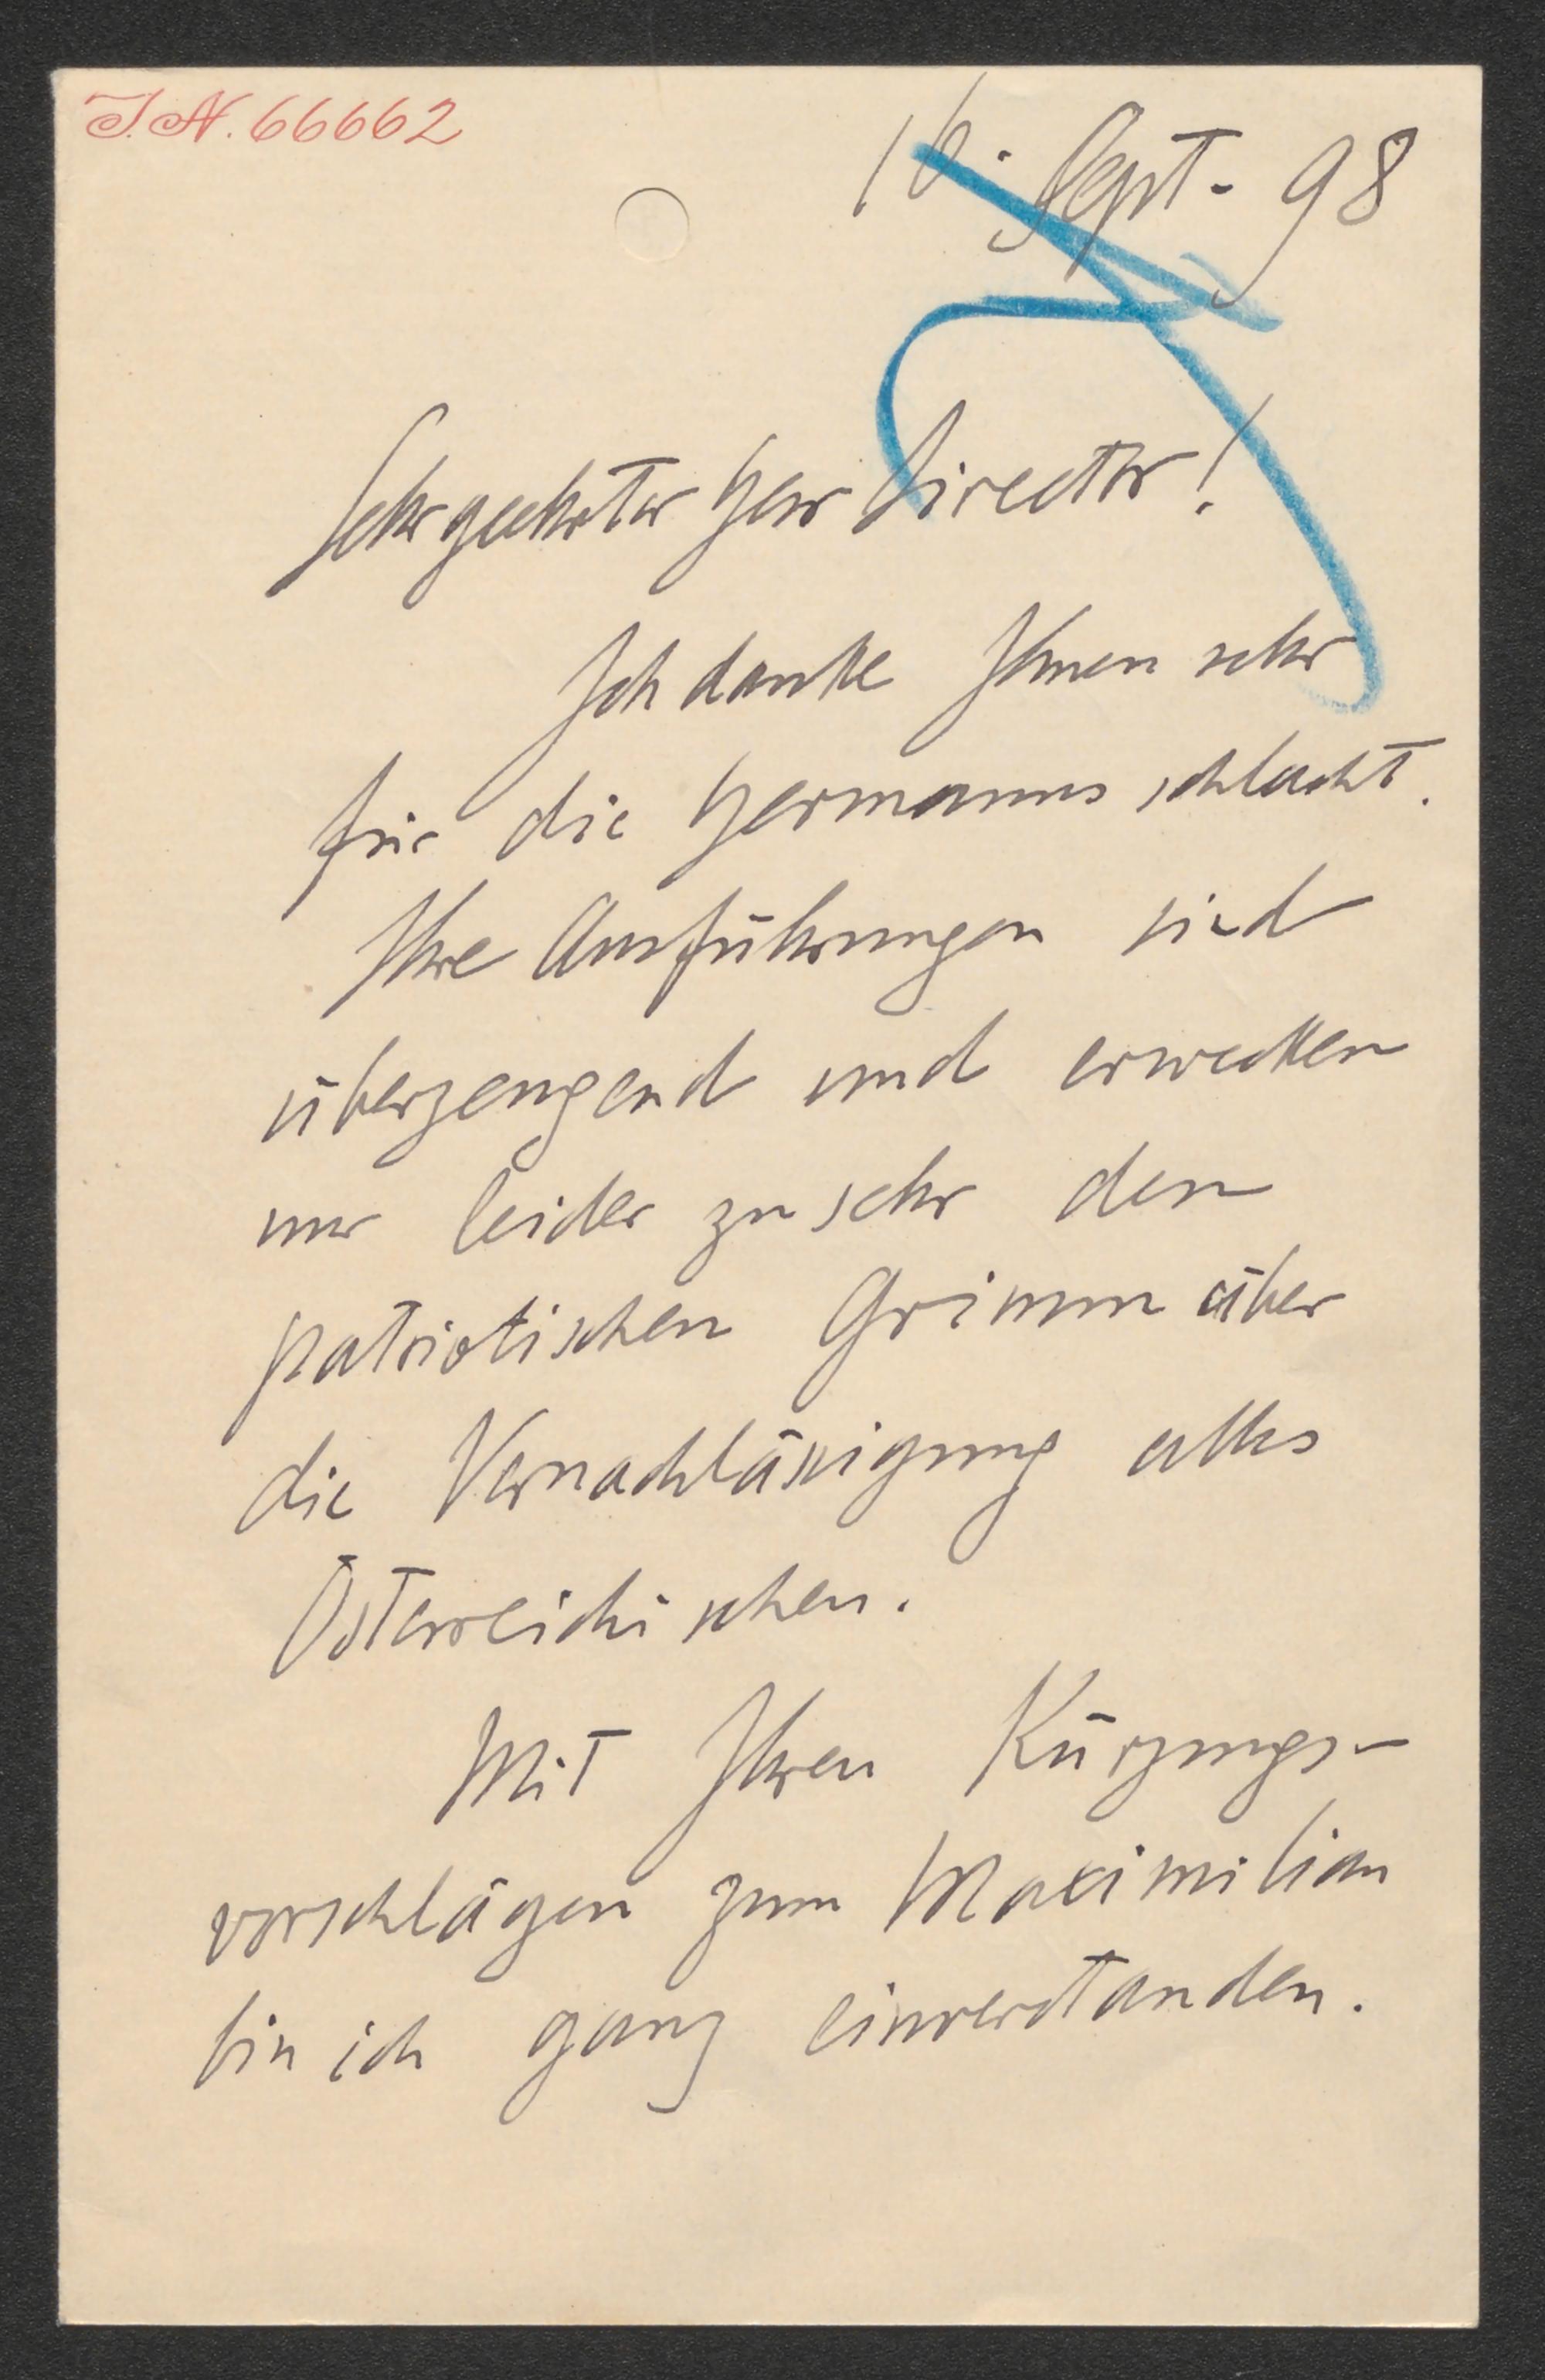 J.N. 66662
16. Sept. 98
Sehrgeehrter Herr Director!
Ich danke Ihnen sehr
für die Hermannsschlacht.
Ihre Ausführungen sind
überzeugend und erwecken
nur leider zu sehr den
patriotischen Grimm über
die Vernachlässigung alles
Österreichischen.
Mit Ihren Kürzungs-
vorschlägen zum Maximilian
bin ich ganz einverstanden.